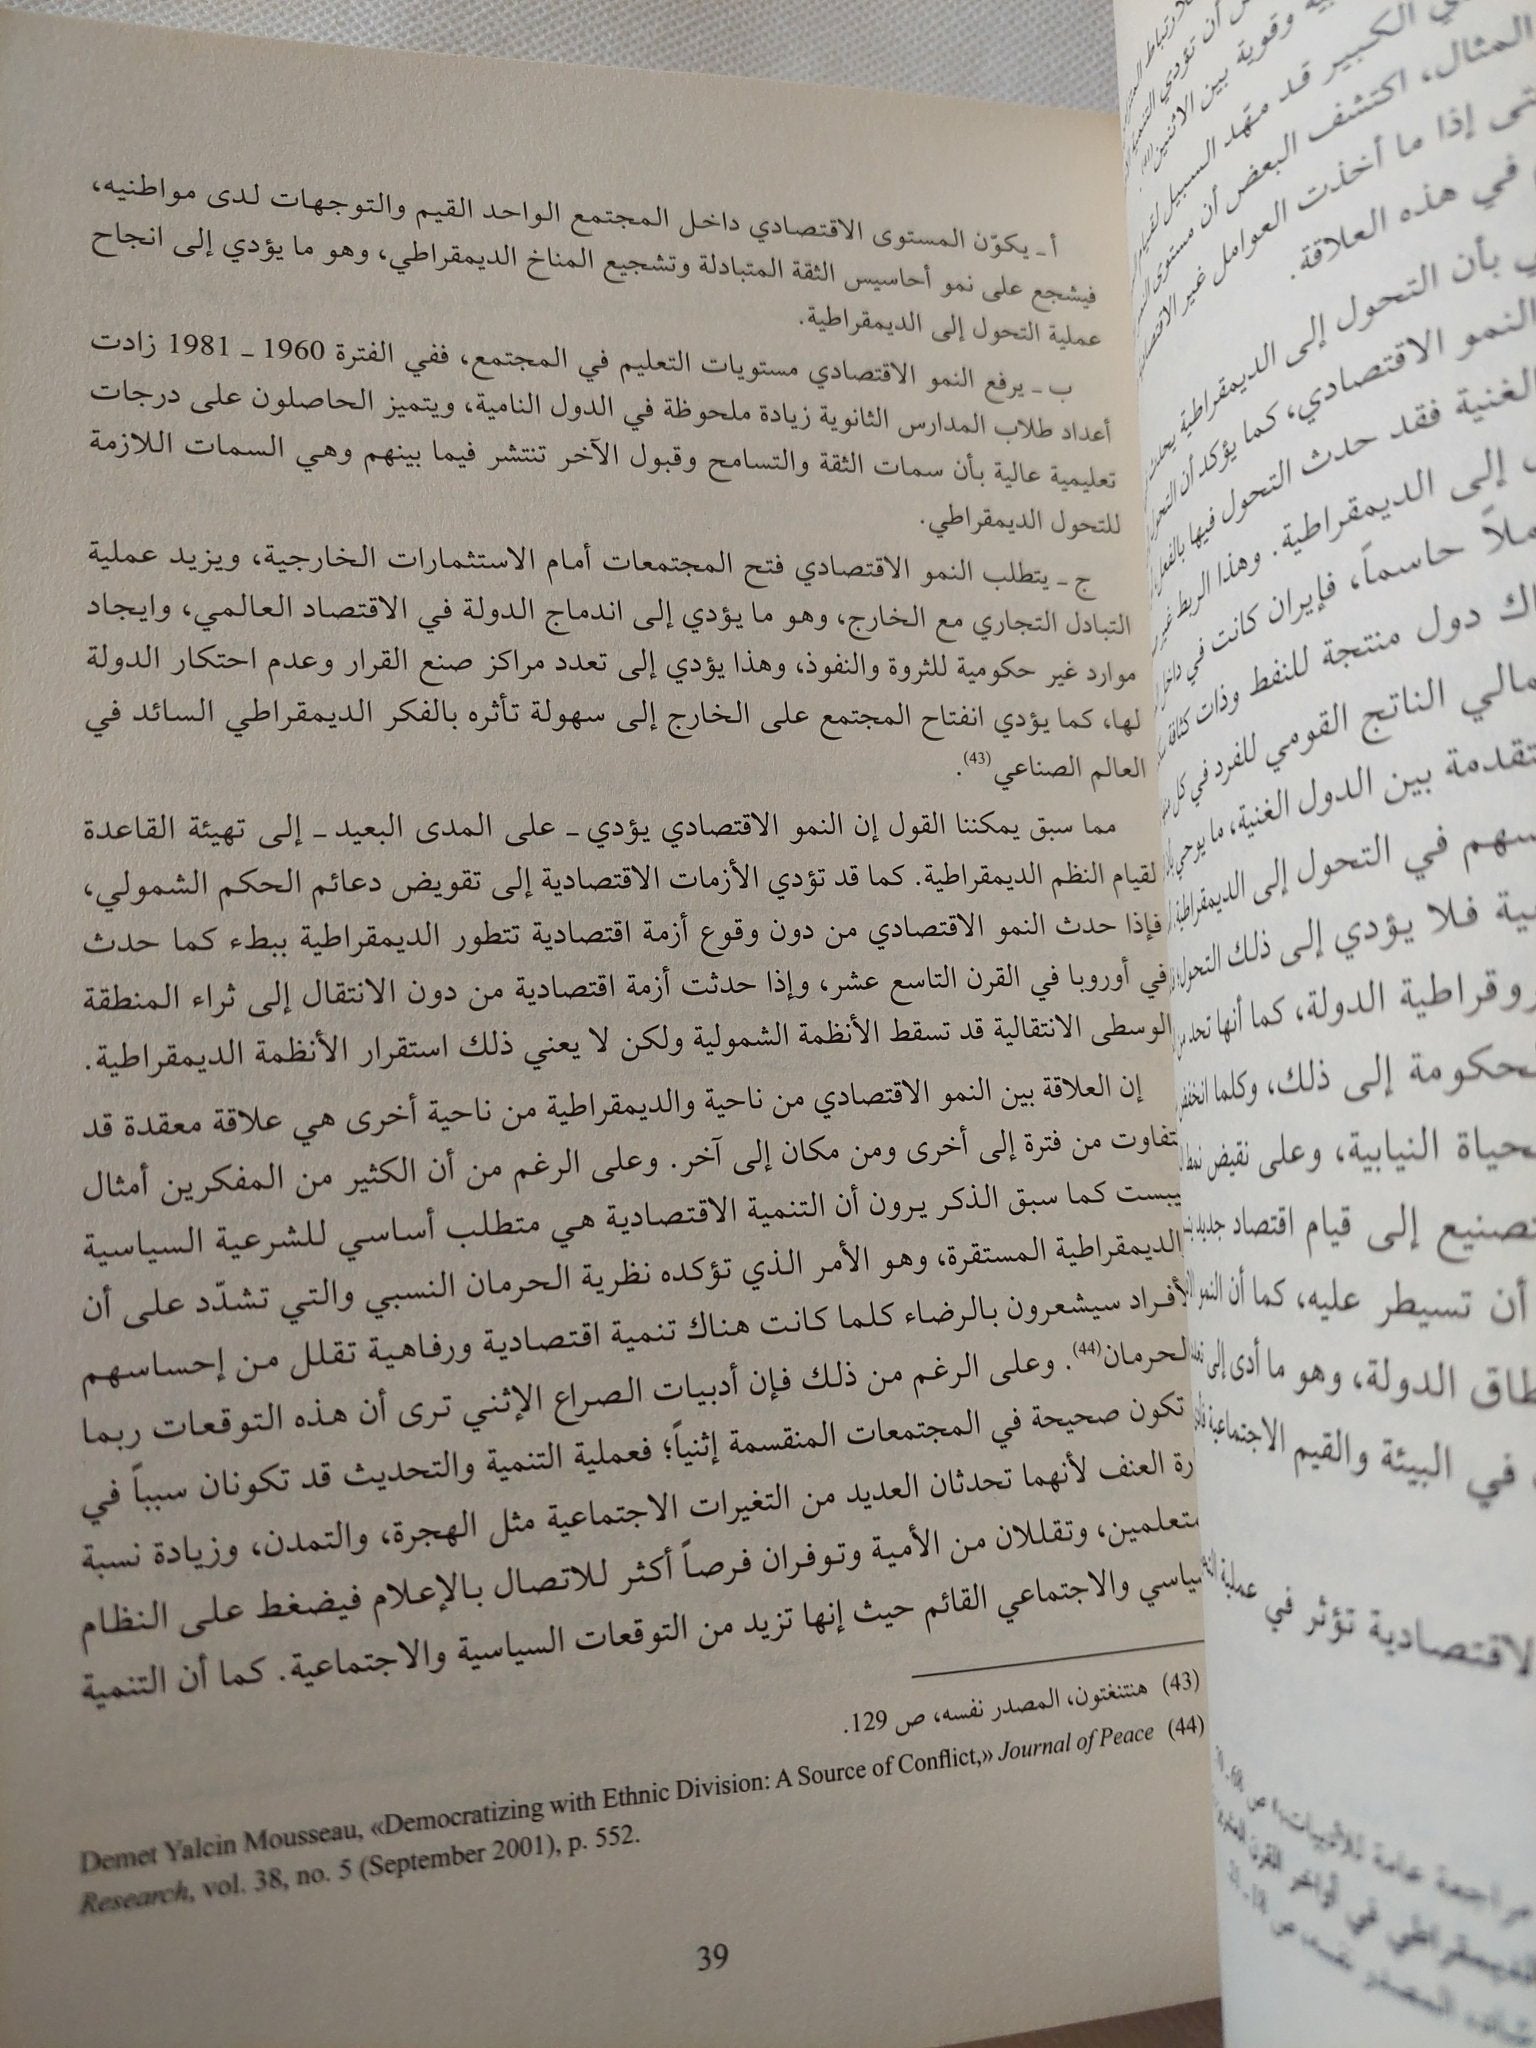 أ ـ يكوّن المستوى الاقتصادي داخل المجتمع الواحد القيم والتوجهات لدى مواطنيه،
فيشجع على نمو أحاسيس الثقة المتبادلة وتشجيع المناخ الديمقراطي، وهو ما يؤدي إلى انجاح
عملية التحول إلى الديمقراطية.
ب ـ يرفع النمو الاقتصادي مستويات التعليم في المجتمع، ففي الفترة 1960 ـ 1981 زادت
أعداد طلاب المدارس الثانوية زيادة ملحوظة في الدول النامية، ويتميز الحاصلون على درجات
تعليمية عالية بأن سمات الثقة والتسامح وقبول الآخر تنتشر فيما بينهم وهي السمات اللازمة
للتحول الديمقراطي.
ج ـ يتطلب النمو الاقتصادي فتح المجتمعات أمام الاستثمارات الخارجية، ويزيد عملية
التبادل التجاري مع الخارج، وهو ما يؤدي إلى اندماج الدولة في الاقتصاد العالمي، وايجاد
موارد غير حكومية للثروة والنفوذ، وهذا يؤدي إلى تعدد مراكز صنع القرار وعدم احتكار الدولة
لها، كما يؤدي انفتاح المجتمع على الخارج إلى سهولة تأثره بالفكر الديمقراطي السائد في
العالم الصناعي(43).
مما سبق يمكننا القول إن النمو الاقتصادي يؤدي ـ على المدى البعيد ـ إلى تهيئة القاعدة
لقيام النظم الديمقراطية. كما قد تؤدي الأزمات الاقتصادية إلى تقويض دعائم الحكم الشمولي،
فإذا حدث النمو الاقتصادي من دون وقوع أزمة اقتصادية تتطور الديمقراطية ببطء كما حدث
في أوروبا في القرن التاسع عشر، وإذا حدثت أزمة اقتصادية من دون الانتقال إلى ثراء المنطقة
الوسطى الانتقالية قد تسقط الأنظمة الشمولية ولكن لا يعني ذلك استقرار الأنظمة الديمقراطية.
إن العلاقة بين النمو الاقتصادي من ناحية والديمقراطية من ناحية أخرى هي علاقة معقدة قد
تتفاوت من فترة إلى أخرى ومن مكان إلى آخر. وعلى الرغم من أن الكثير من المفكرين أمثال
يبست كما سبق الذكر يرون أن التنمية الاقتصادية هي متطلب أساسي للشرعية السياسية
الديمقراطية المستقرة، وهو الأمر الذي تؤكده نظرية الحرمان النسبي والتي تشدّد على أن
الأفراد سيشعرون بالرضاء كلما كانت هناك تنمية اقتصادية ورفاهية تقلل من إحساسهم
الحرمان(44). وعلى الرغم من ذلك فإن أدبيات الصراع الإثني ترى أن هذه التوقعات ربما
تكون صحيحة في المجتمعات المنقسمة إثنياً؛ فعملية التنمية والتحديث قد تكونان سبباً في
رة العنف لأنهما تحدثان العديد من التغيرات الاجتماعية مثل الهجرة، والتمدن، وزيادة نسبة
متعلمين، وتقللان من الأمية وتوفران فرصاً أكثر للاتصال بالإعلام فيضغط على النظام
سياسي والاجتماعي القائم حيث إنها تزيد من التوقعات السياسية والاجتماعية. كما أن التنمية
(43) هنتنغتون، المصدر نفسه، ص 129.
(44) Demet Yalcin Mousseau, «Democratizing with Ethnic Division: A Source of Conflict,» Journal of Peace
Research, vol. 38, no. 5 (September 2001), p. 552.
39
أن تؤدي التنمية
وقوية بين الاثنين(41).
الكبير قد مهّد السبيل لقيام
المثال، اكتشف البعض أن مستوى
إذا ما أخذت العوامل غير
في هذه العلاقة.
بأن التحول إلى الديمقراطية يحدث
النمو الاقتصادي، كما يؤكد أن التحول
الغنية فقد حدث التحول فيها بالفعل
إلى الديمقراطية. وهذا الربط
حاسماً، فإيران كانت في
دول منتجة للنفط وذات كثافة
الناتج القومي للفرد في كل
بين الدول الغنية، ما يوحي
في التحول إلى الديمقراطية
فلا يؤدي إلى ذلك التحول
الدولة، كما أنها تحد من
إلى ذلك، وكلما
النيابية، وعلى نقيض
إلى قيام اقتصاد جديد
أن تسيطر عليه، كما أن النمو
الدولة، وهو ما أدى إلى
في البيئة والقيم الاجتماعية
الاقتصادية تؤثر في عملية
مراجعة عامة للأدبيات،» ص
في أواخر القرن
المصدر نفسه، ص